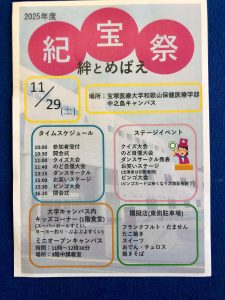 2025年度
紀宝祭
絆とめばえ
11/29(土)
場所：宝塚医療大学和歌山保健医療学部
中之島キャンパス
タイムスケジュール
10:00 参加者受付
10:30 開会式
11:00 クイズ大会
11:40 のど自慢大会
13:15 ダンスサークル
15:00 お笑いステージ
15:30 ビンゴ大会
16:30 閉会式
ステージイベント
クイズ大会
のど自慢大会
ダンスサークル発表
お笑いステージ
ビンゴ大会
大学キャンパス内
キッズコーナー(1階食堂)
(スーパーボールすくい、
ヨーヨー釣り・ぷよぷよすくい)
ミニオープンキャンパス
時間：11時～12時30分
場所：3階中講義室
模擬店(東側駐車場)
フランクフルト・だません
たこ焼き
スイーツ
おでん・チュロス
焼きそば